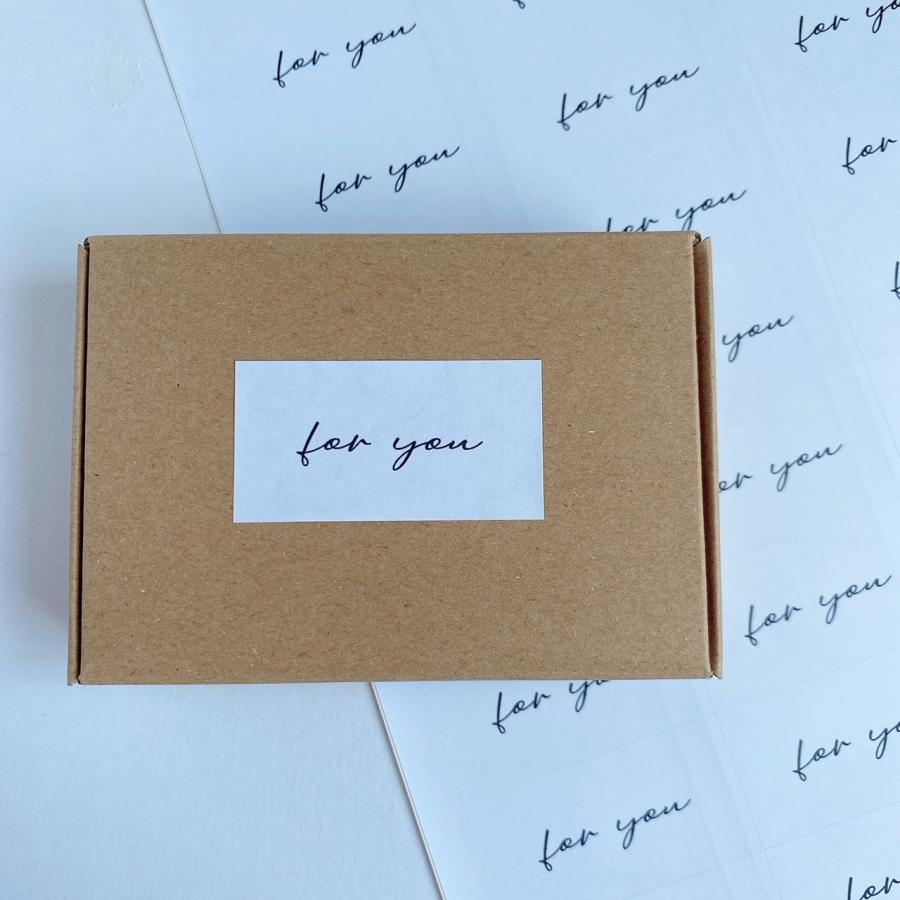 for you
for you
for you
for you
for
for you
you
for you
you
for you
for
for
for you
for